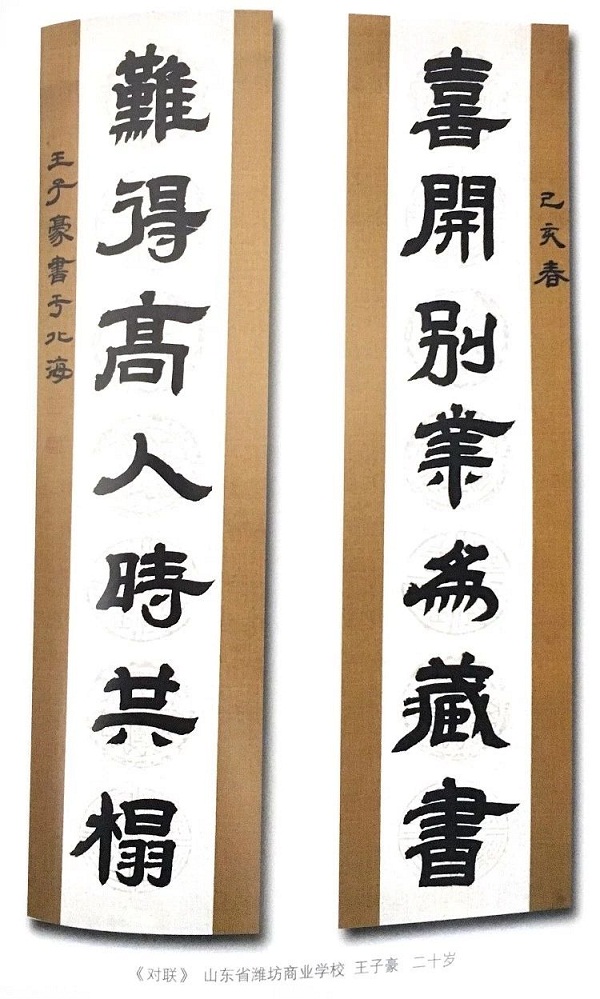 己亥春
喜開别業為藏書
難得高人時共榻
王子豪書于北海
《对联》 山东省潍坊商业学校 王子豪 二十岁